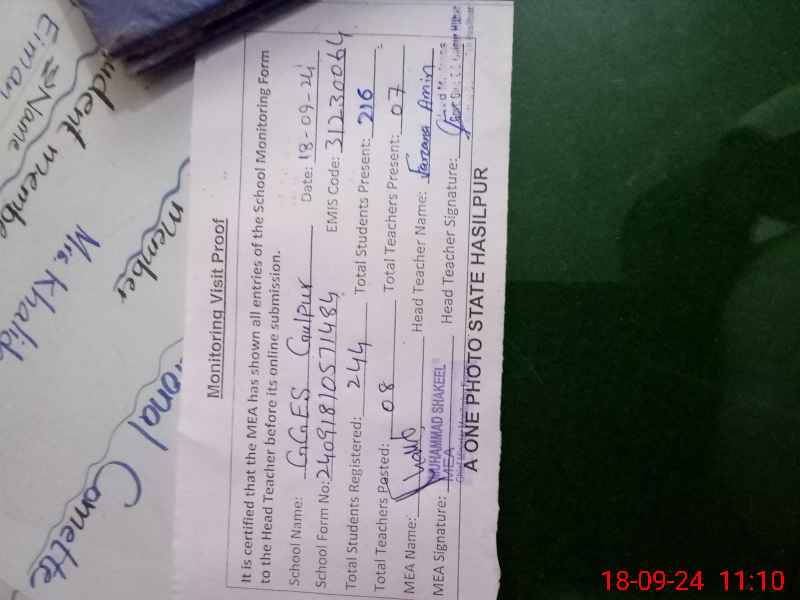 Monitoring Visit Proof
It is certified that the MEA has shown all entries of the School Monitoring Form
to the Head Teacher before its online submission.
School Name: GGES Gulpur Date: 18-09-24
School Form No: 24091810571484 EMIS Code: 31230064
Total Students Registered: 244 Total Students Present: 216
Total Teachers Posted: 08 Total Teachers Present: 07
MEA Name: Head Teacher Name: Farzana Amin
MUHAMMAD SHAKEEL
MEA Signature: MEA Head Teacher Signature:
A ONE PHOTO STATE HASILPUR
Eiman
Name
member
Mrs. Khalid
member
Comette
18-09-24 11:10